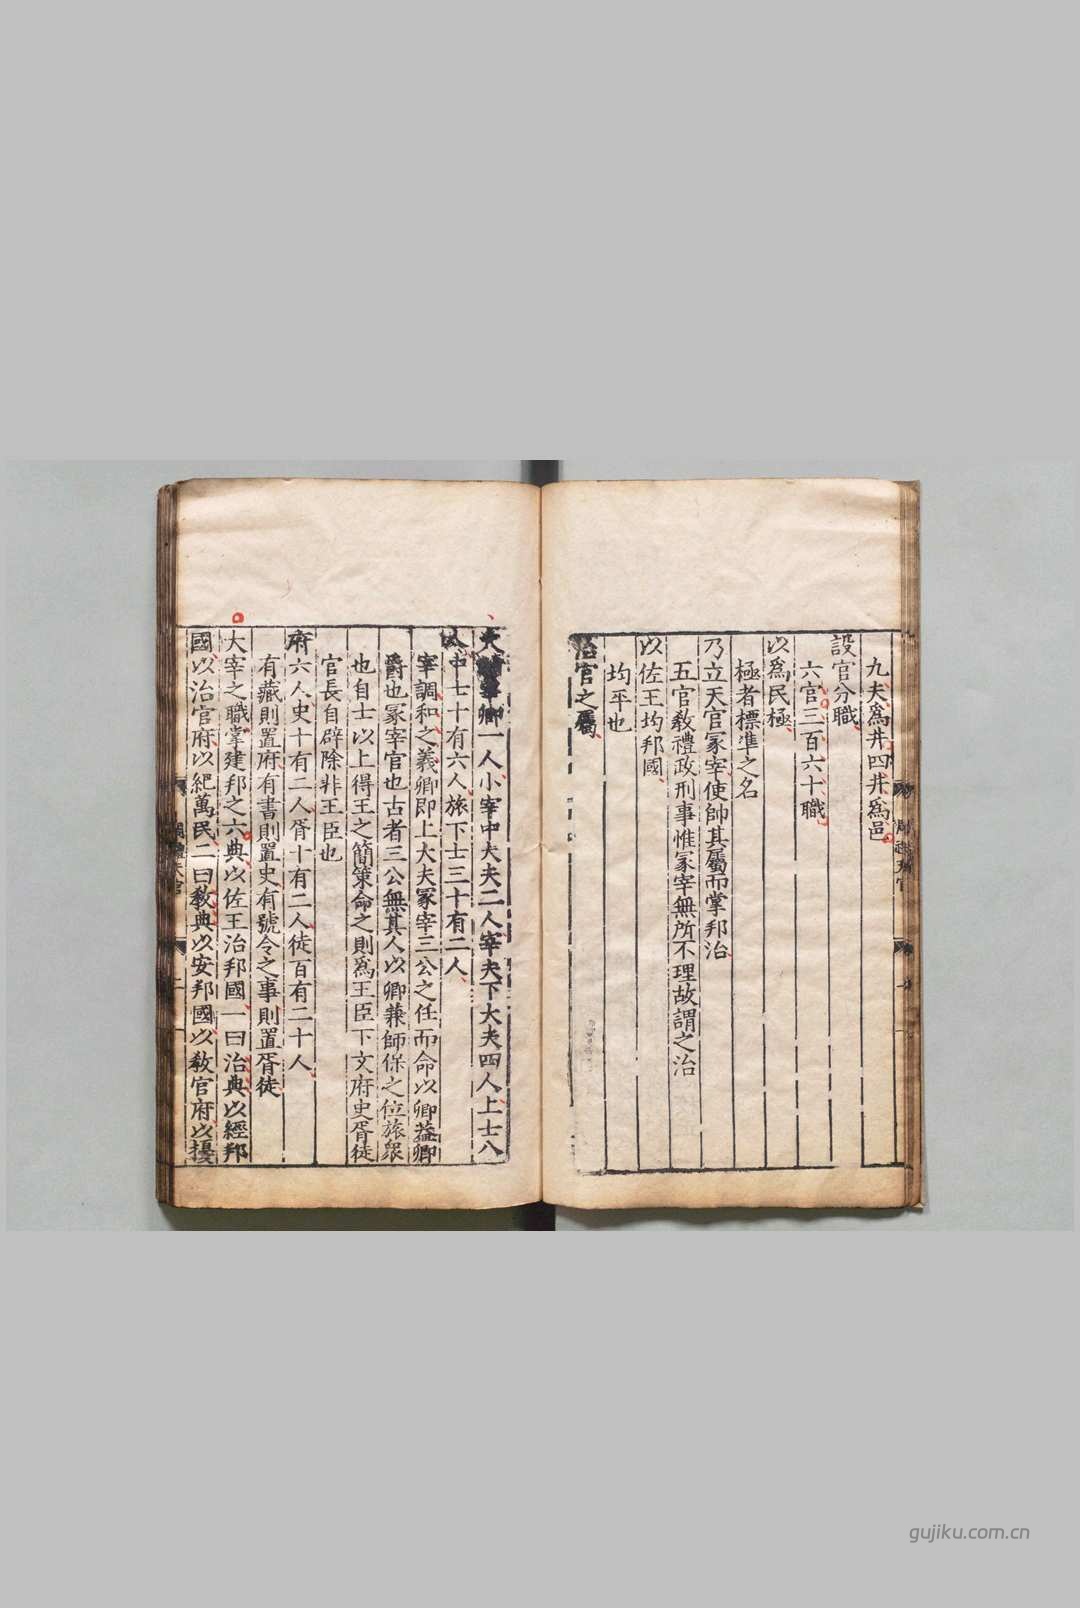 九夫爲井四井爲邑
設官分職
六官三百六十職
以爲民極
極者標準之名
乃立天官冢宰使帥其屬而掌邦治
五官敎禮政刑事惟冢宰無所不理故謂之治
以佐王均邦國
均平也
治官之屬
大宰卿一人小宰中大夫二人宰夫下大夫四人上士八
人中士十有六人旅下士三十有二人
宰調和之義卿即上大夫冢宰三公之任而命以卿蓋卿
爵也冢宰官也古者三公無其人以卿兼師保之位旅衆
也自士以上得王之簡策命之則爲王臣下文府史胥徒
官長自辟除非王臣也
府六人史十有二人胥十有二人徒百有二十人
有藏則置府有書則置史有號令之事則置胥徒
大宰之職掌建邦之六典以佐王治邦國一曰治典以經邦
國以治官府以紀萬民二曰敎典以安邦國以敎官府以擾
gujiku.com.cn